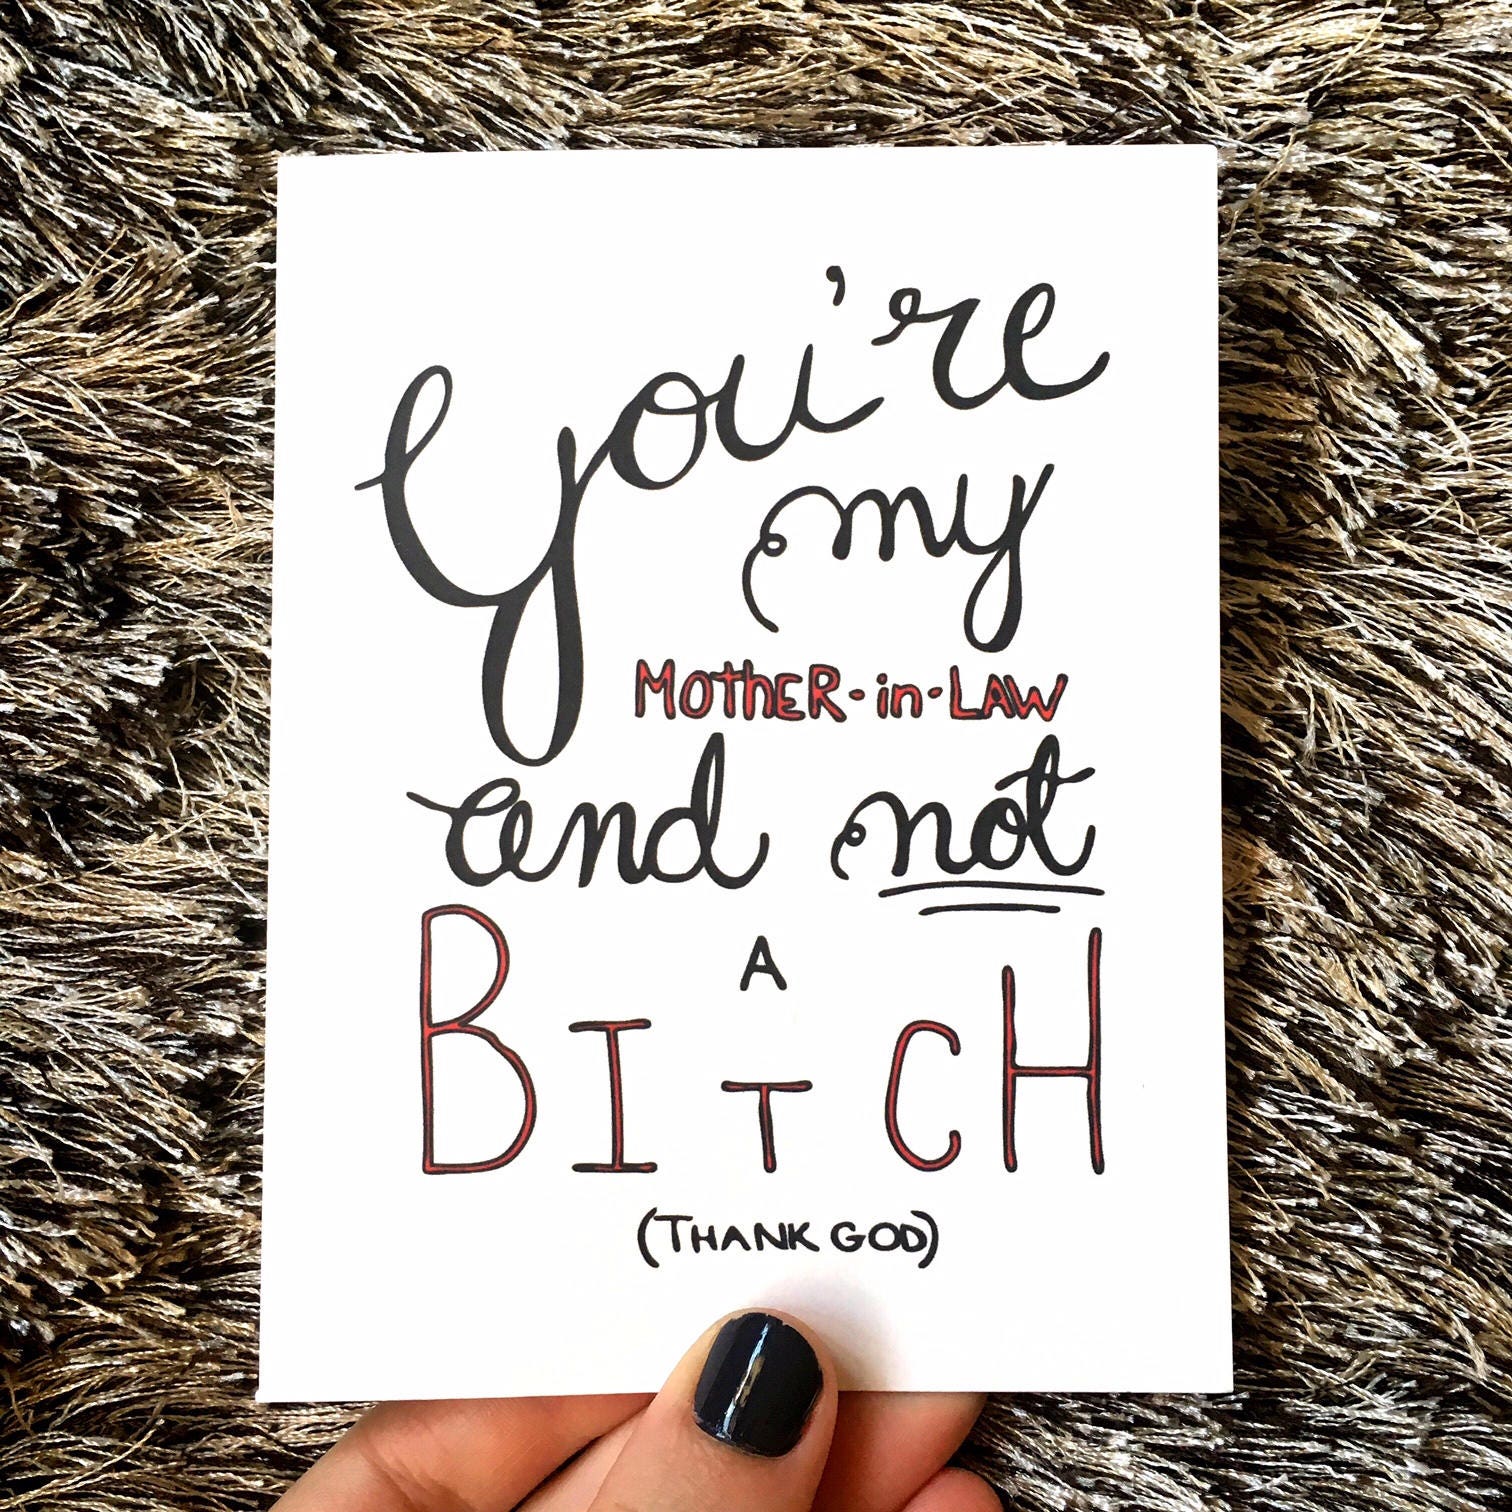 You're
my
MotHER-in-LAW
and not
A
BITCH
(THANK GOD)